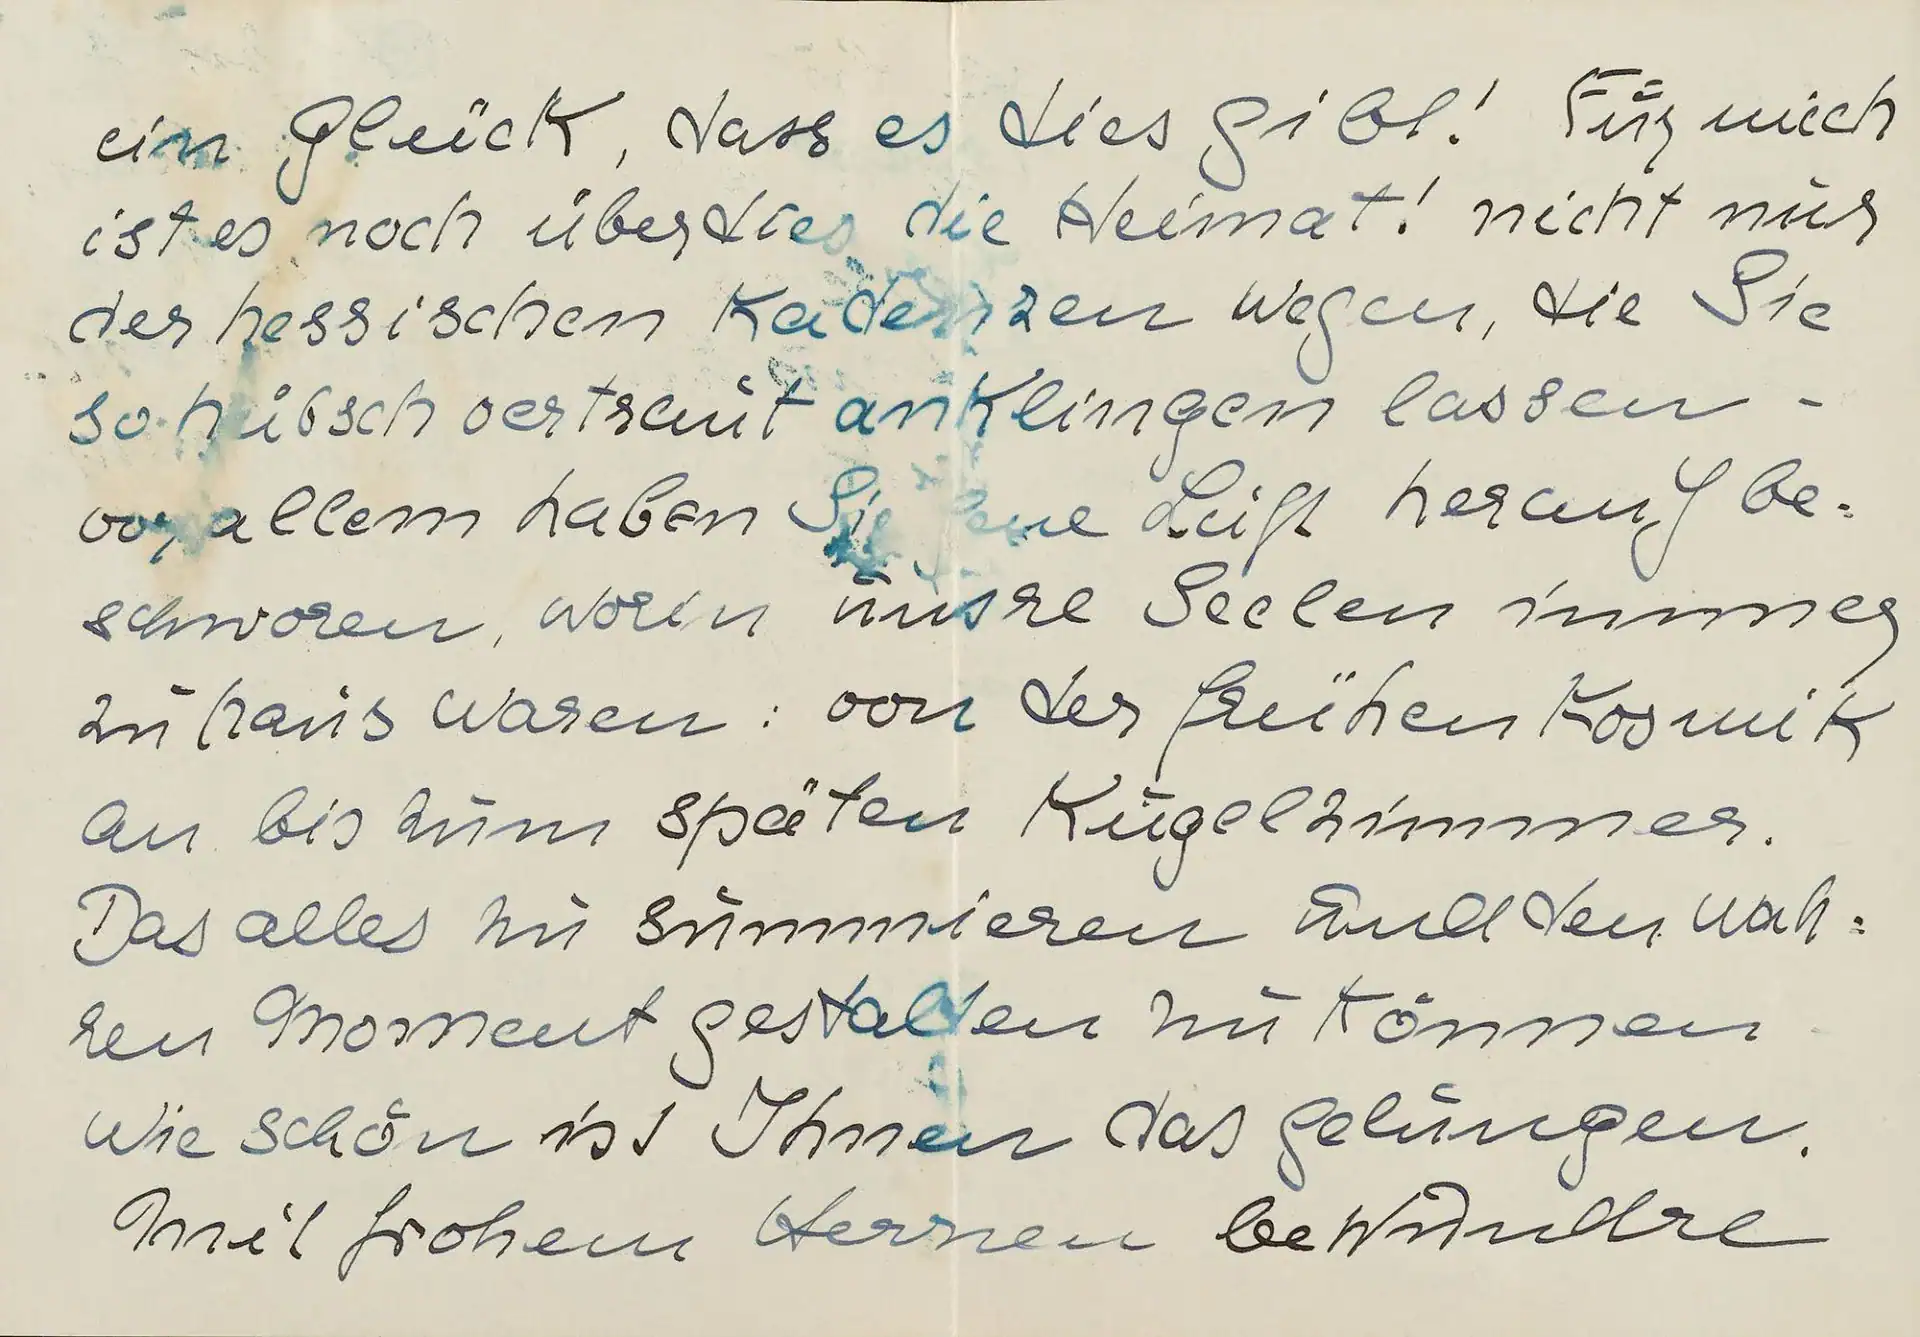 ein Glück, dass es dies gibt! Für mich
ist es noch überdies die Heimat! nicht nur
der hessischen Kadenzen wegen, die Sie
so hübsch vertraut anklingen lassen -
vor allem haben Sie jene Luft herauf be-
schworen, worin unsre Seelen immer
zuhaus waren: von der frühen Kosmik
an bis zum späten Kugelzimmer.
Das alles zu summieren und den wah-
ren Moment gestalten zu können
wie schön ist Ihnen das gelungen.
Mit frohem Herzen bewundre